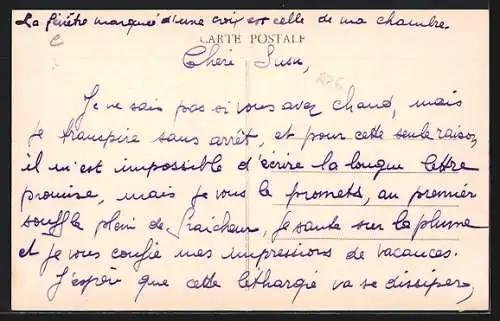 La fenêtre marquée d'une croix est celle de ma chambre.
CARTE POSTALE
Cheri Susu,
Je ne sais pas si vous avez chaud, mais
je transpire sans arrêt, et pour cette seule raison,
il m'est impossible d'écrire la longue lettre
promise, mais je vous le promets, au premier
souffle plein de fraicheur, je saute sur la plume
et je vous confie mes impressions de vacances.
J'espère que cette léthargie va se dissiper,